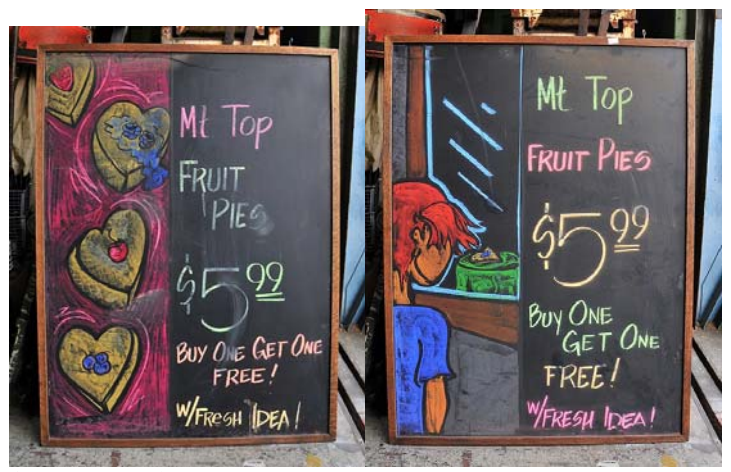 Mt Top
FRUIT
PIES
$5.99
BUY ONE GET ONE
FREE!
W/FRESH IDEA!
Mt Top
FRUIT PIES
$5.99
BUY ONE
GET ONE
FREE!
W/FRESH IDEA!